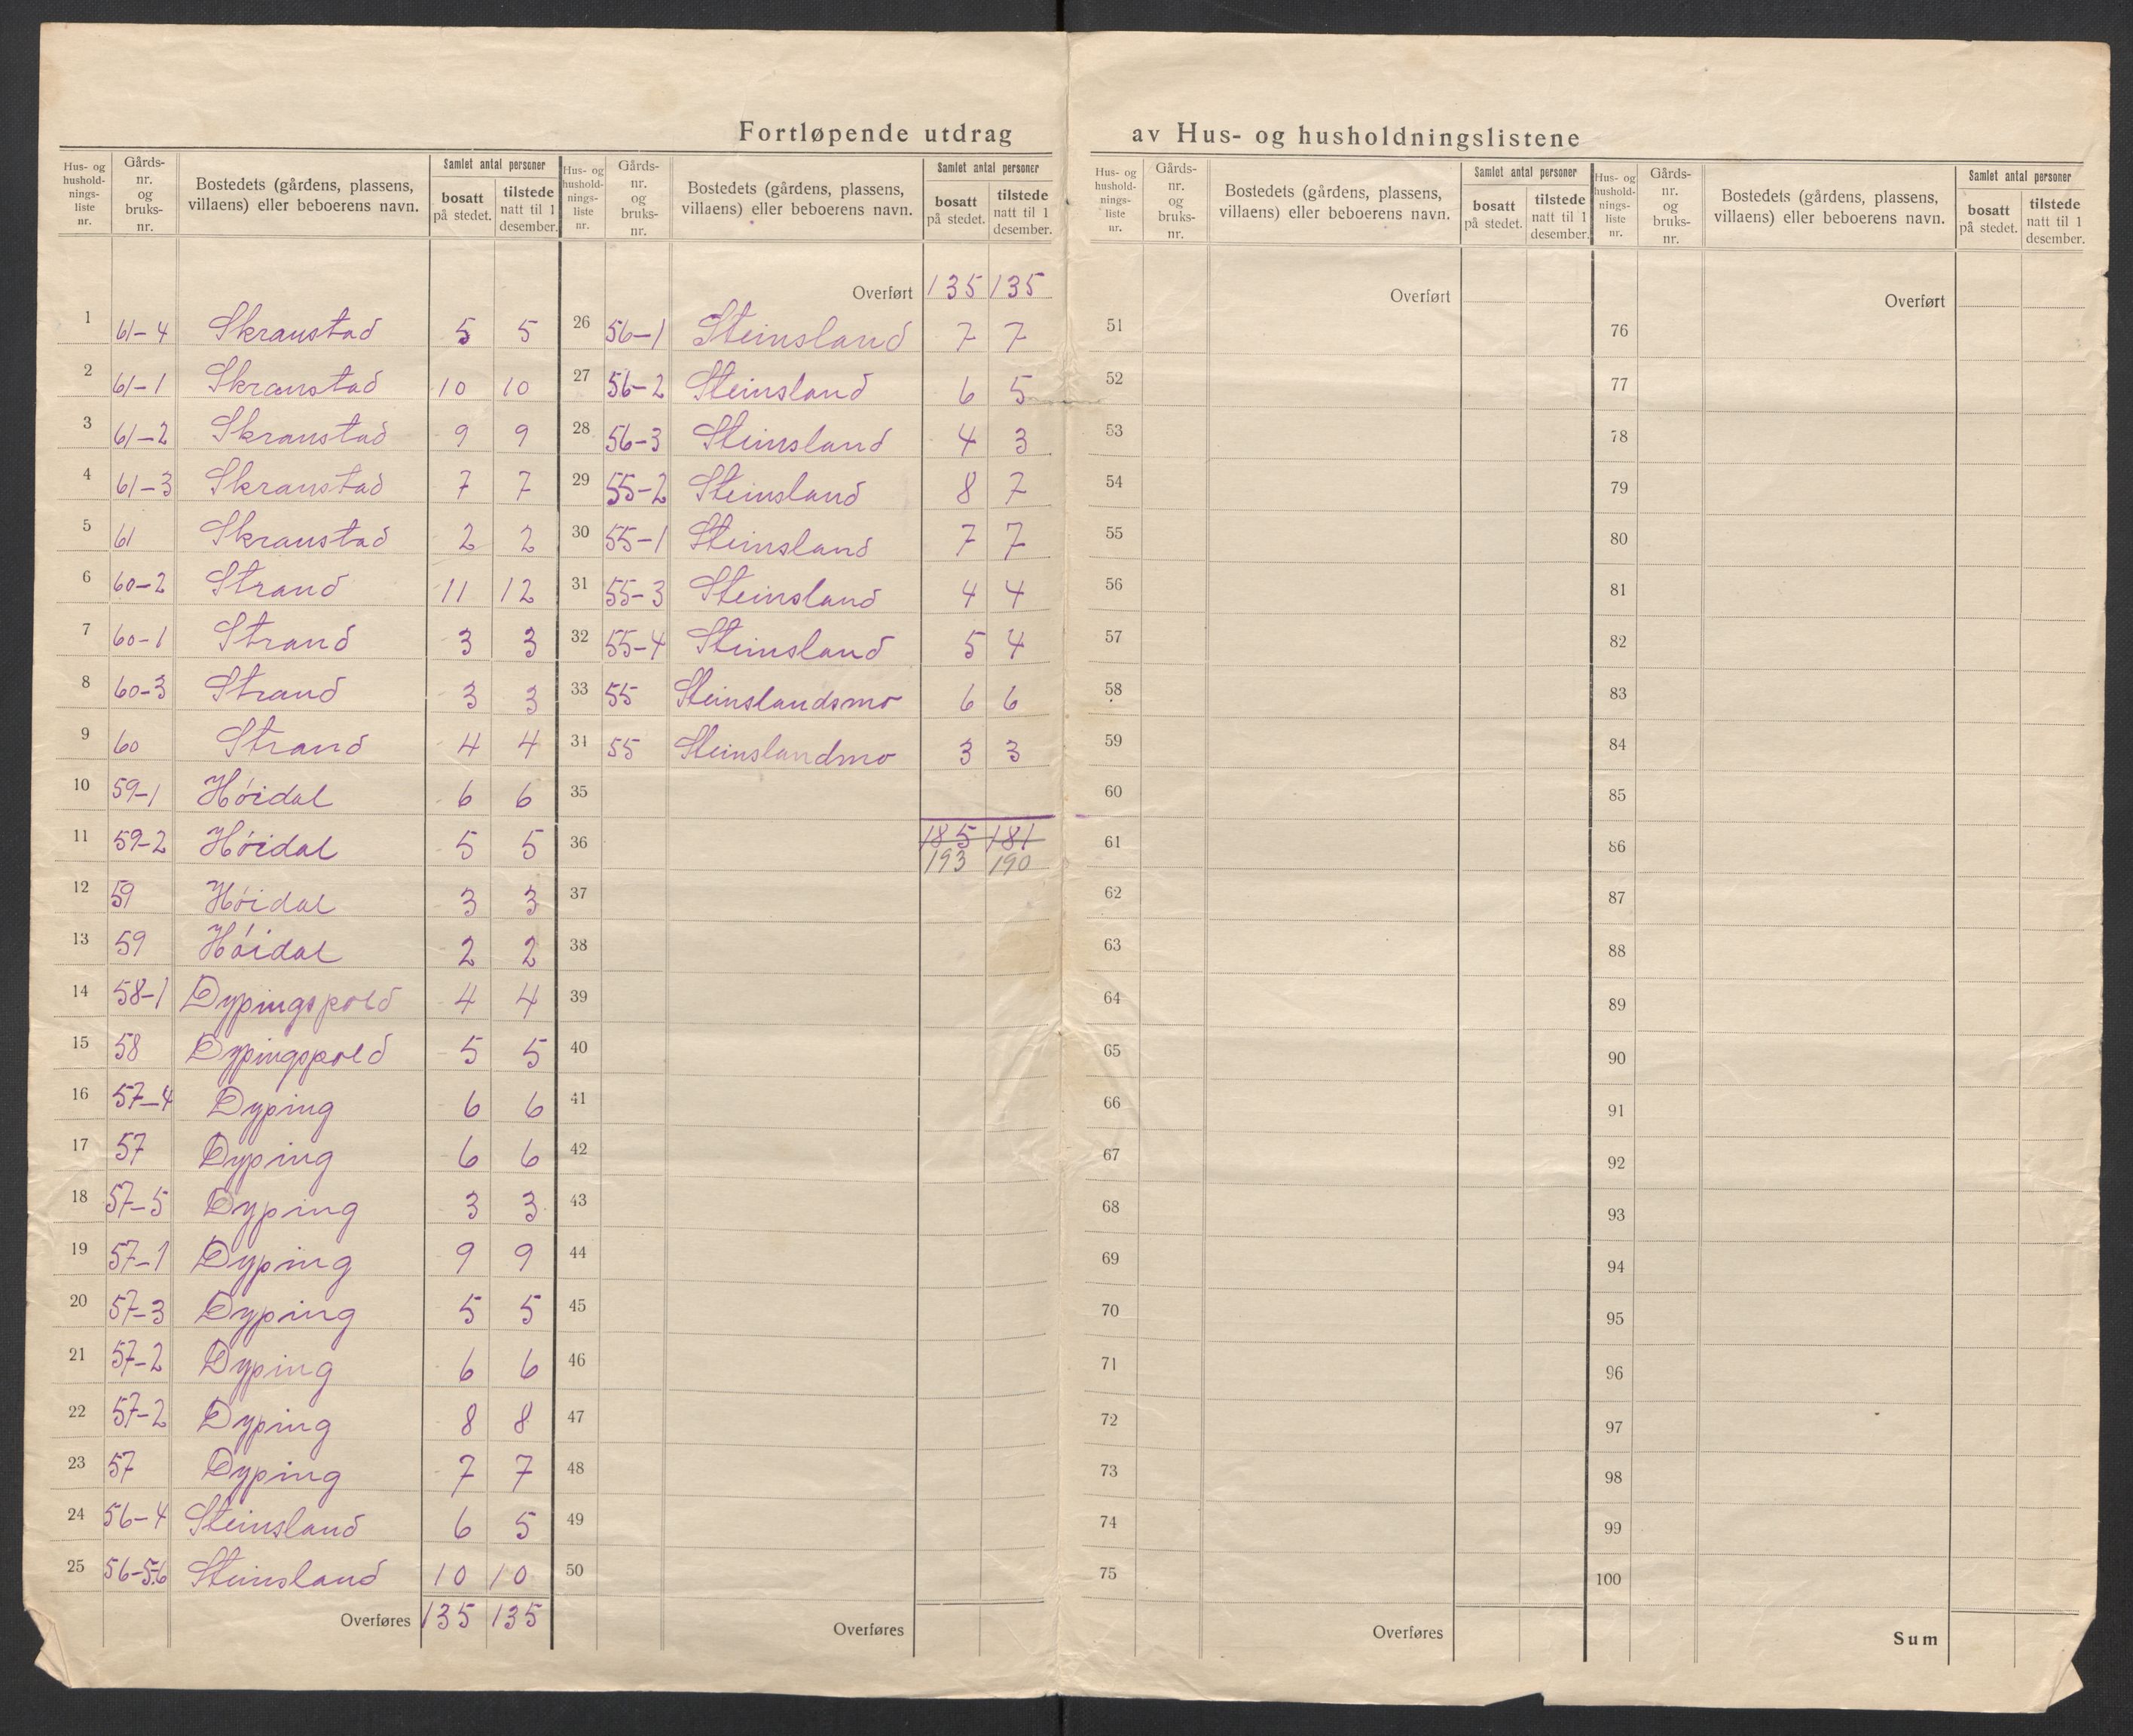 Fortløpende utdrag av Hus- og husholdningslistene
Hus- og hushold- nings- liste nr. Gårds- nr. og bruks- nr. Bostedets (gårdens, plassens, villaens) eller beboerens navn. Samlet antal personer bosatt på stedet. tilstede natt til 1 desember.
1 61-4 Skranstad 5 5
2 61-1 Skranstad 10 10
3 61-2 Skranstad 9 9
4 61-3 Skranstad 7 7
5 61 Skranstad 2 2
6 60-2 Strand 11 12
7 60-1 Strand 3 3
8 60-3 Strand 3 3
9 60 Strand 4 4
10 59-1 Høidal 6 6
11 59-2 Høidal 5 5
12 59 Høidal 3 3
13 59 Høidal 2 2
14 58-1 Dypingspold 4 4
15 58 Dypingspold 5 5
16 57-4 Dyping 6 6
17 57 Dyping 6 6
18 57-5 Dyping 3 3
19 57-1 Dyping 9 9
20 57-3 Dyping 5 5
21 57-2 Dyping 6 6
22 57-2 Dyping 8 8
23 57 Dyping 7 7
24 56-4 Steinsland 6 5
25 56-5.6 Steinsland 10 10
Overføres 135 135
Hus- og hushold- nings- liste nr. Gårds- nr. og bruks- nr. Bostedets (gårdens, plassens, villaens) eller beboerens navn. Samlet antal personer bosatt på stedet. tilstede natt til 1 desember.
Overført 135 135
26 56-1 Steinsland 7 7
27 56-2 Steinsland 6 5
28 56-3 Steinsland 4 3
29 55-2 Steinsland 8 7
30 55-1 Steinsland 7 7
31 55-3 Steinsland 4 4
32 55-4 Steinsland 5 4
33 55 Steinslandsmo 6 6
34 55 Steinslandmo 3 3
35
36 185 181
193 190
37
38
39
40
41
42
43
44
45
46
47
48
49
50
Overføres
Hus- og hushold- nings- liste nr. Gårds- nr. og bruks- nr. Bostedets (gårdens, plassens, villaens) eller beboerens navn. Samlet antal personer bosatt på stedet. tilstede natt til 1 desember.
Overført
51
52
53
54
55
56
57
58
59
60
61
62
63
64
65
66
67
68
69
70
71
72
73
74
75
Overføres
Hus- og hushold- nings- liste nr. Gårds- nr. og bruks- nr. Bostedets (gårdens, plassens, villaens) eller beboerens navn. Samlet antal personer bosatt på stedet. tilstede natt til 1 desember.
Overført
76
77
78
79
80
81
82
83
84
85
86
87
88
89
90
91
92
93
94
95
96
97
98
99
100
Sum